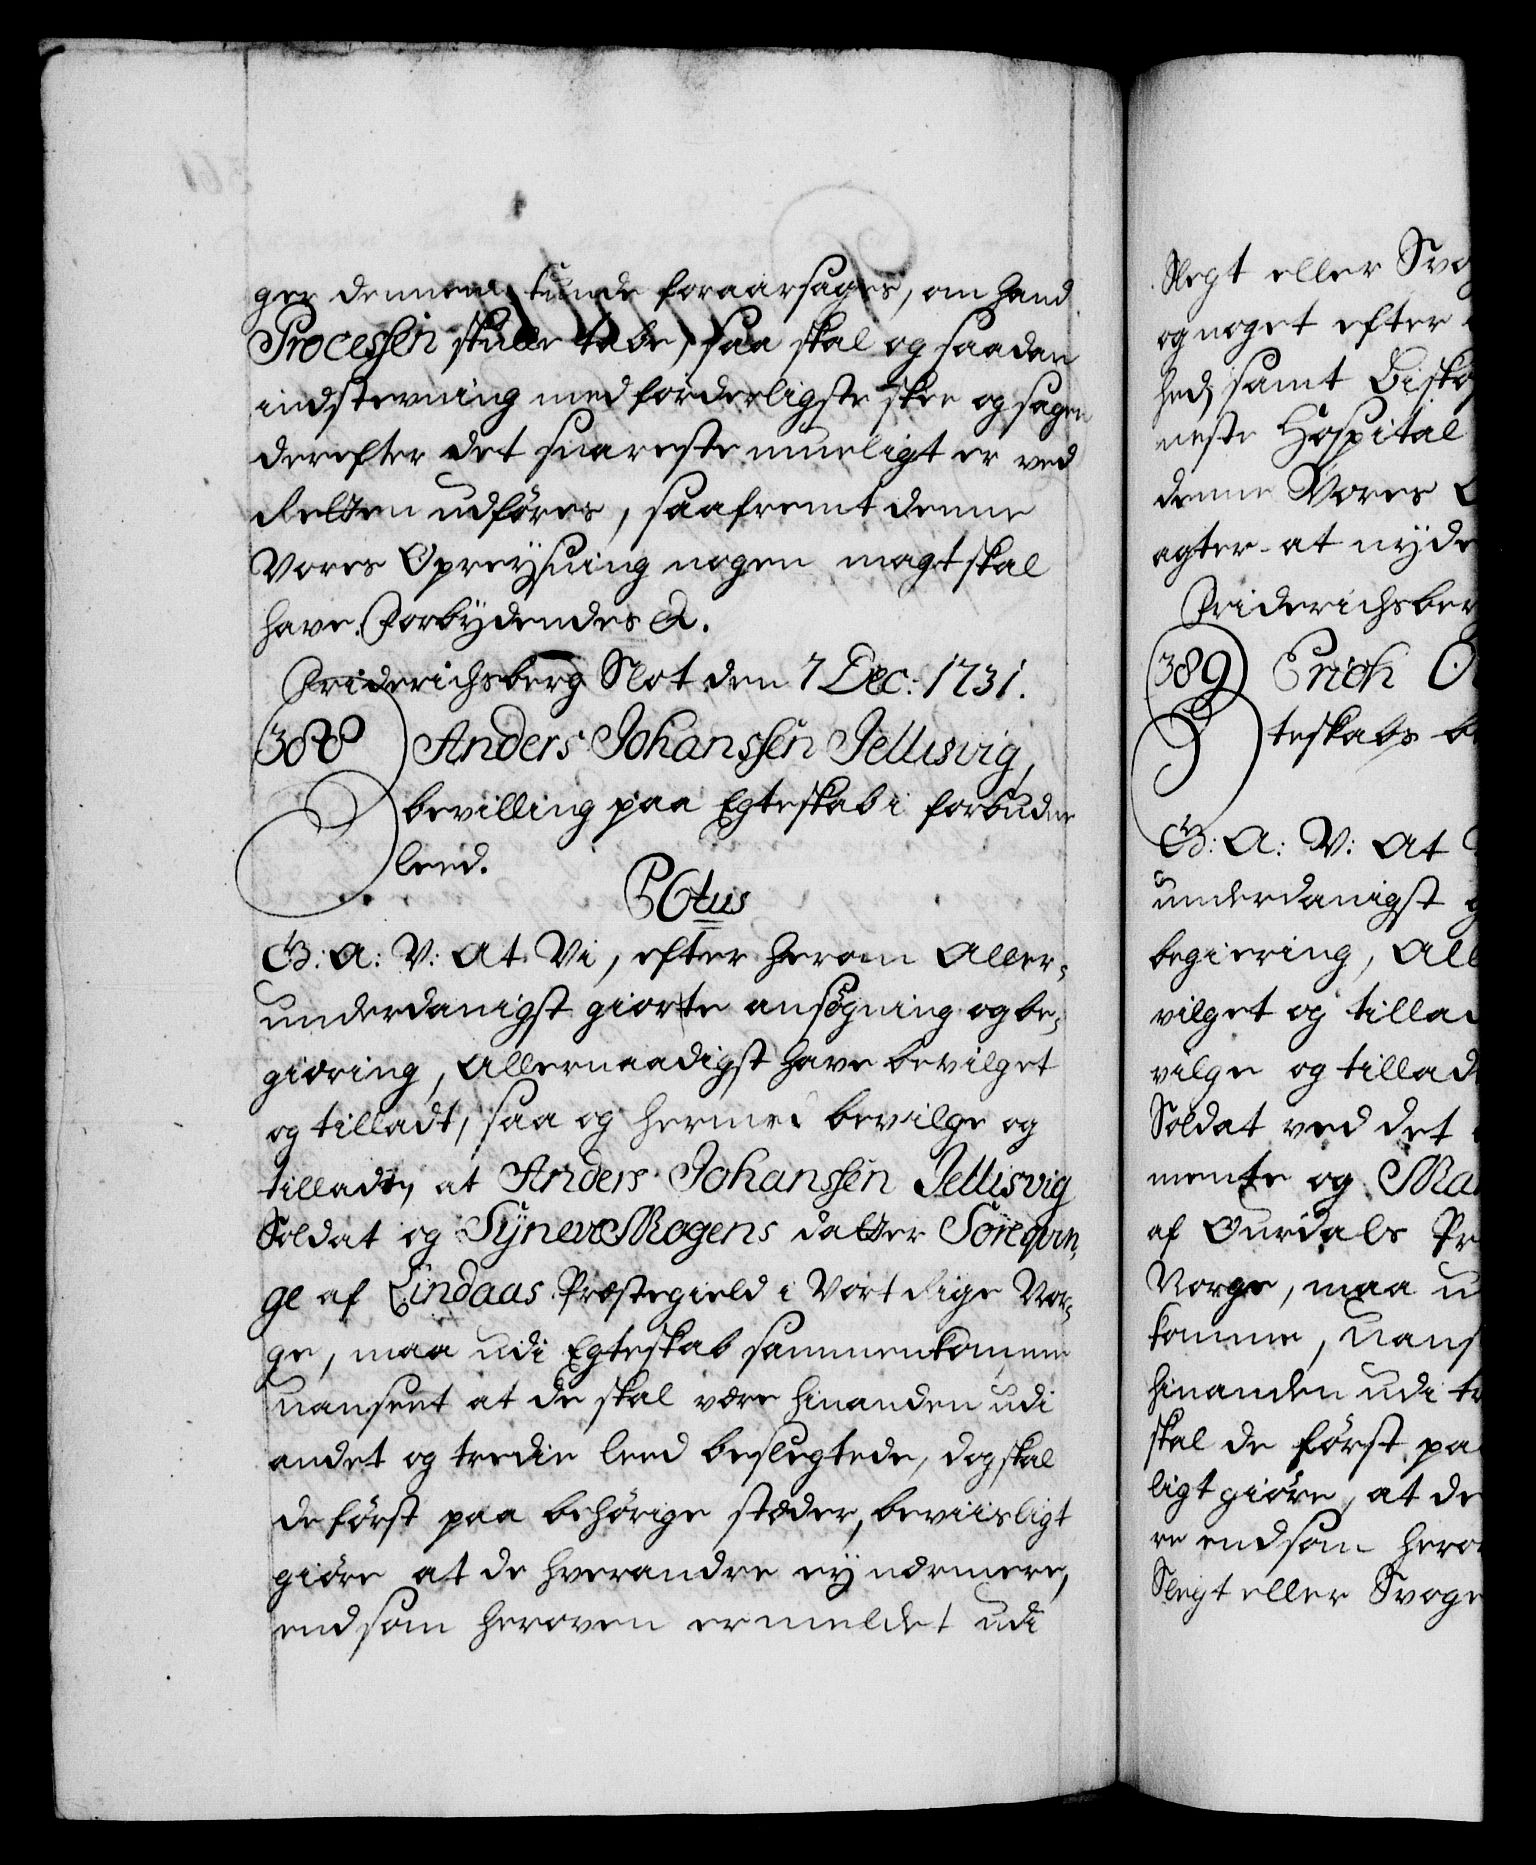 ger dennem kunde foraarsages, om hand
Processen skulle tabe, saa skal og saadan
indstevning med forderligste skee og sagen
derefter det snareste mueligt er ved
Retten udføres, saafremt denne
Vores Opreysning nogen magt skal
have. Forbydendes &.
Friderichsberg Slot den 7 Dec: 1731.
388 Anders Johanssen Jellisvig,
bevilling paa Egteskab i forbudne
leed.
C6tus
G: A: V: At Vi, efter herom Aller-
underdanigst giorte ansøgning og be-
giæring, Allernaadigst have bevilget
og tilladt, saa og hermed bevilge og
tillade, at Anders Johanssen Jellisvig
Soldat og Synneve Mogens datter
ge af Lindaas Præstegield i Vort Rige Nor-
ge, maa udi Egteskab sammenkomme
uanseet at de skal være hinanden udi
andet og tredie leed beslegtede, dog skal
de først paa behørige stæder, beviisligt
giøre at de hverandre ey nærmere,
end som heroven ermeldet udi
Slegt eller Svog
og noget efter
hed, samt Bisko
neste Hospital
denne Vores
agter at nyde
Friderichsber
389 Erich
teskabs be
G: A: V: At
underdanigst
begiering, All
vilget og tillad
vilge og tillad
Soldat ved det
mente og Ma
af Ourdals Pr
Norge, maa u
komme, uans
hinanden udi tr
skal de først pa
ligt giøre, at de
re end som hero
Slegt eller Svoge